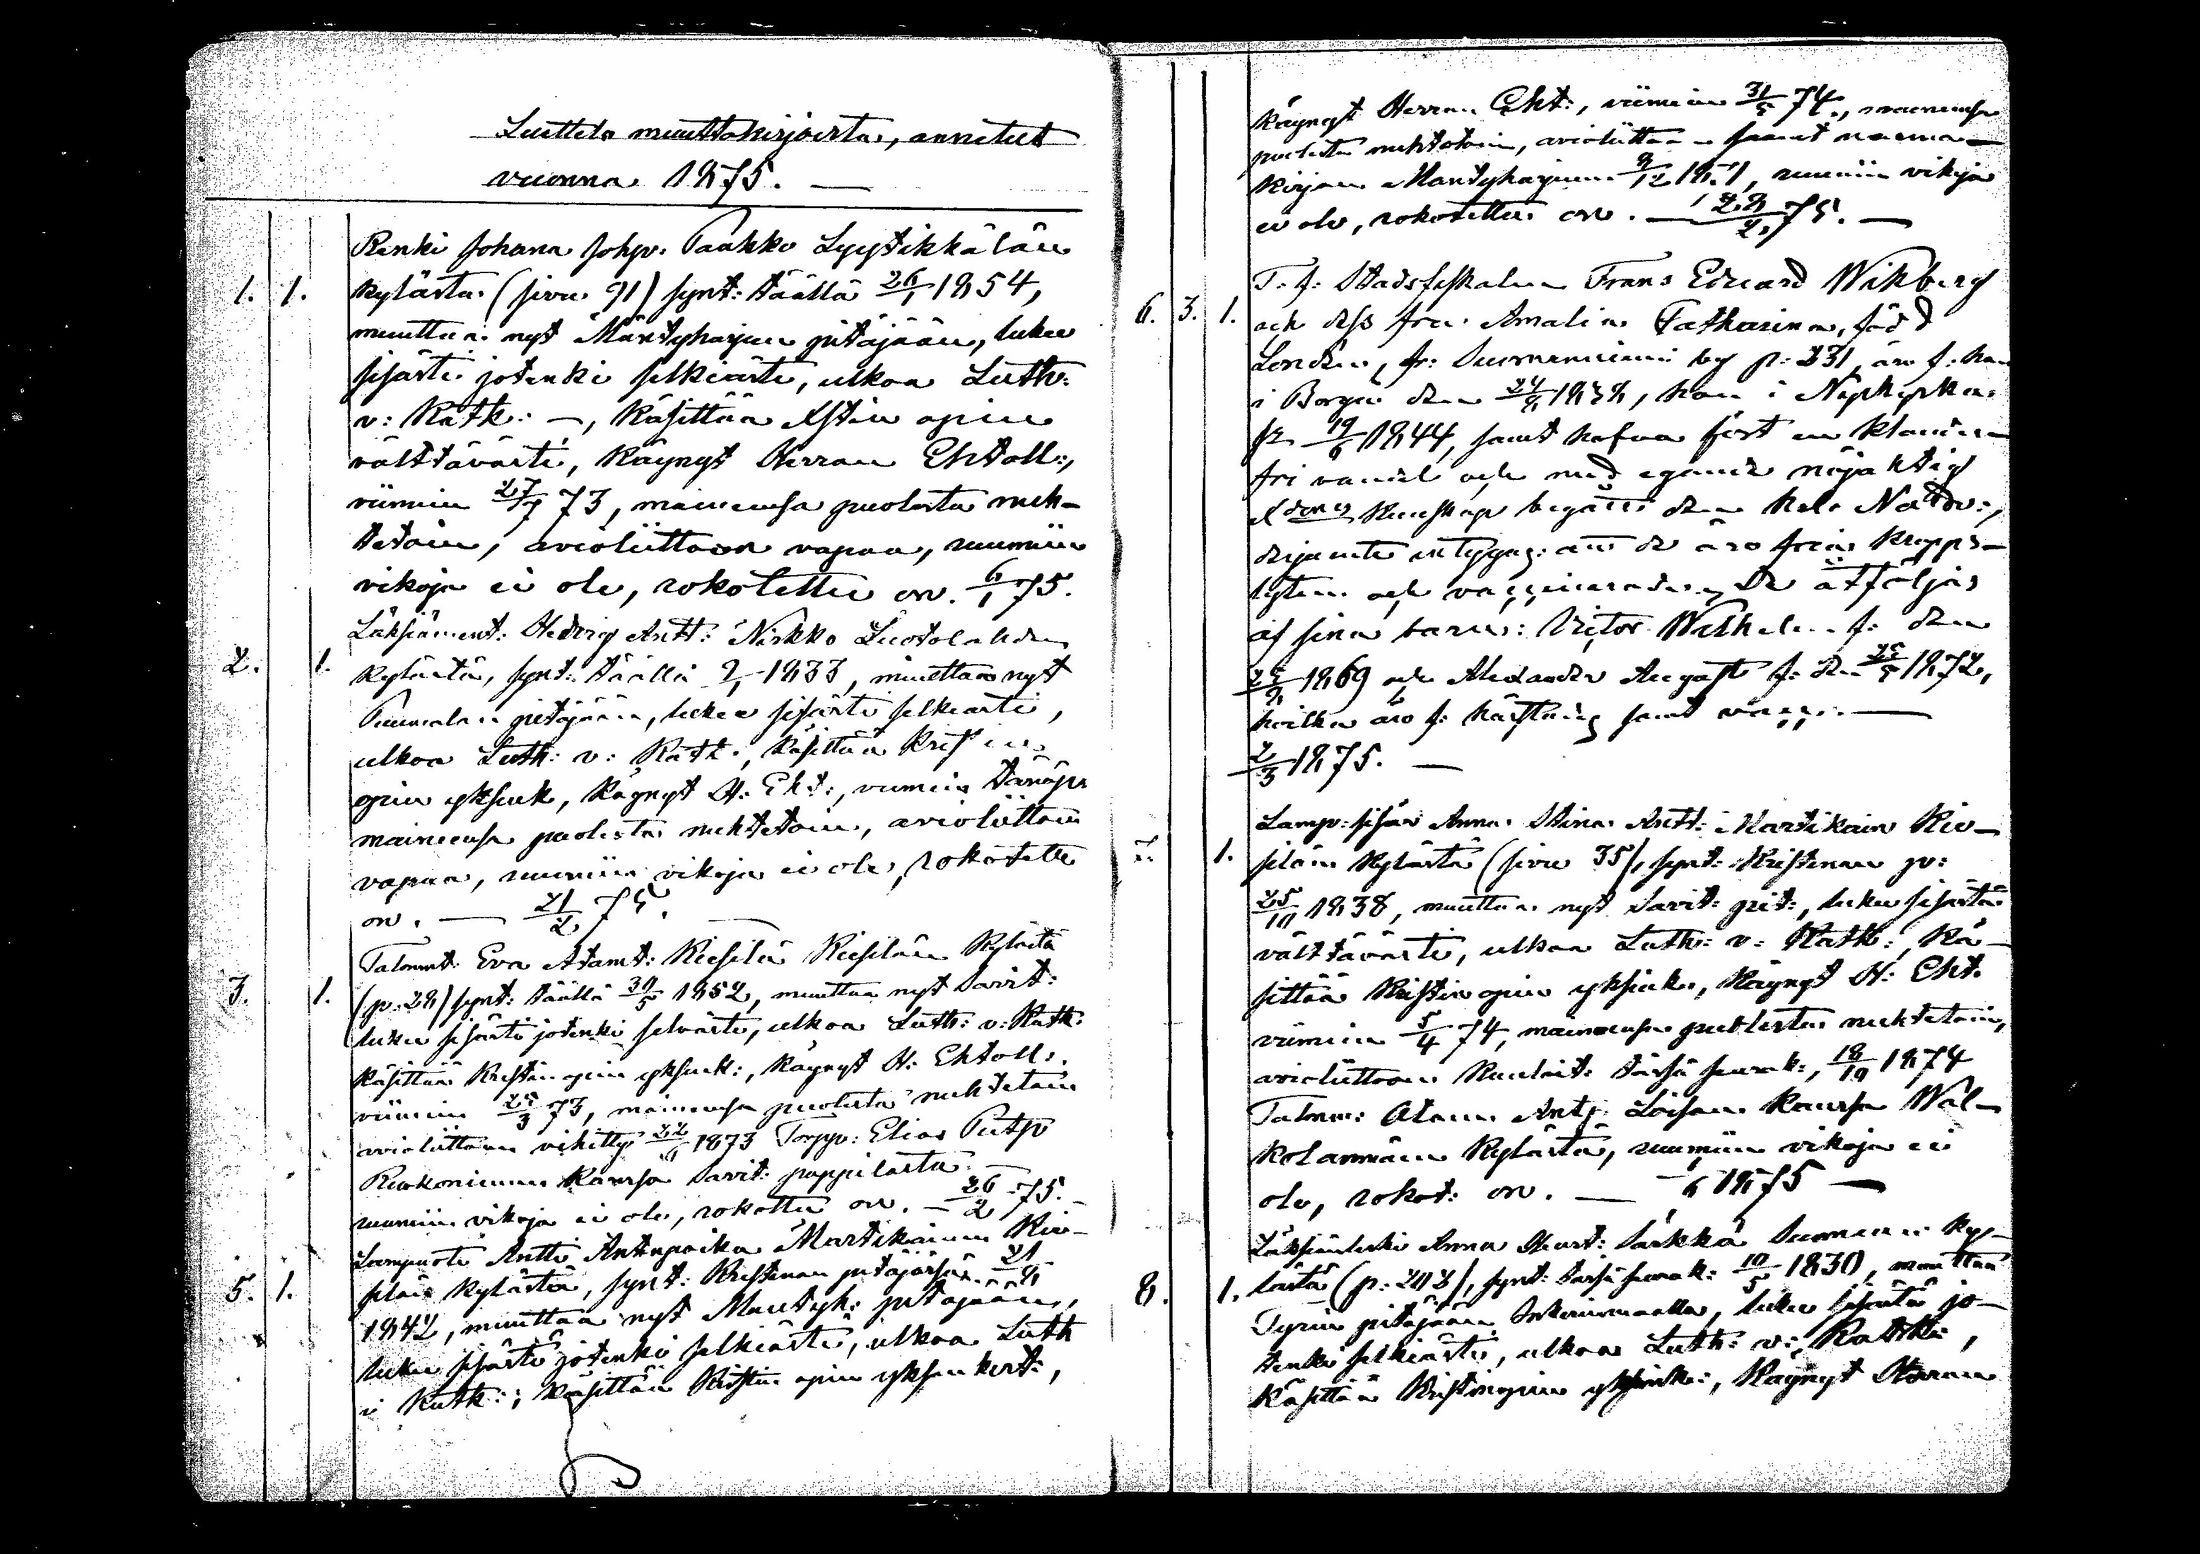 Luettelo muuttokirjoista, annetut
vuonna 1875. —
Renki Johana Johp. Paakko Lyytikkälän
1. 1. kylästä (sivu 91) synt: täällä 26/1 1854,
muuttaa nyt Mäntyharjun pitäjään, lukee
sisästi jotenki selkiästi, ulkoa Luth:
v: Katk: —, Käsittää Xstin opin
välttävästi, Käynyt Herran Ehtoll:,
viimein 27/7 73, maineensa puolesta nuh-
tetoin, avioliittoon vapaa, ruumiin
vikoja ei ole, rokotettu on. 6/1 75.
Läksiäment: Hedvig Antt: Nirkko Luotolahden
2. 1. kylästä, synt: täällä 1833, muuttaa nyt
Puumalan pitäjään, lukee sisästi selkiästi,
ulkoa Luth: v: Katk:, Käsittää Krist
opin yksink, Käynyt H: Eht:, viimein
maineensa puolesta nuhtetoin, avioliittoon
vapaa, ruumiin vikoja ei ole, rokotettu
on. — 21/2 75.
Talonmt: Eva Adamt: Kiesilä Kiesilän Kylästä
3. 1. (p: 28) synt: täällä 30/5 1852, muuttaa nyt Savit:
lukee sisästi jotenki selvästi, ulkoa Luth: v: Katk:
Käsittää Kristin opin yksink:, Käynyt H: Ehtoll:
viimein 25/3 73, maineensa puolesta nuhtetoin
avioliittoon vihitty 22/6 1873 Torpp: Elias
Kanssa Savit: pappilasta.
ruumiin vikoja ei ole, rokottu on. — 26/2 75.
Lampuoti Antti Antinpoika Martikainen Kie-
5. 1. silän kylästä, synt: Kristinan pitäjässä 21/8
1842, muuttaa nyt Mäntyh: pitäjään,
lukee sisästi jotenki selkiästi, ulkoa Luth
i Katk:; Käsittää Kristin opin yksinkert:,
Käynyt Herran Eht:, viimein 31/5 74, maineensa
puolesta nuhtetoin, avioliittoon saanut nainna-
kirjan Mäntyharjun, ruumiin vikoja
ei ole, rokotettu on. — 28/2 75. —
T. f: Stadsfiskalen Frans Eduard Wikberg
6. 3. 1. och dess fru Amalia Catharina, född
Londén, fr: Suomenniemi by p: 231, äro f: han
i Borgå den 24/8 1838, hon i Nykyrka
19/6 1844, samt hafva fört en klander-
fri vandel och med egande nöjaktig
Kunskap begått den Hela Nattv:,
att de äro fria kropps-
lyten och vaccinerade. De åtföljas
af sina barn: Victor Wilhelm f: den
1869 och Alexander August f: den 25/5 1872,
hvilka äro f: samt vacc: —
2/3 1875. —
Lamp: sisär Anna Stina Antt: Martikain Kie-
7. 1. silän kylästä (sivu 35), synt: Kristinan p:
25/10 1838, muuttaa nyt Savit: pit:, lukee sisästä
välttävästi, ulkoa Luth: v: Katk:, Kä-
sittää Kristin opin yksink:, Käynyt H: Eht.
viimein 5/4 74, maineensa puolesta nuhtetoin,
avioliittoon Kuulut: tässä seurak:, 18/10 1874
Talonm: Adam Antp: Loisan Kanssa Wal-
kolanmäen Kylästä, ruumiin vikoja ei
ole, rokot: on. — 1875 —
Läksiänleski Anna Mart: Särkkä Suomen Ky-
8. 1. lästä (p: 202), synt: tässä seurak: 10/5 1830, muuttaa
Tyrön pitäjään Inkerinmaalla, lukee sisästä jo-
tenki selkiästi, ulkoa Luth: v: Katk:,
Käsittää Kristinopin yksink:, Käynyt Herran